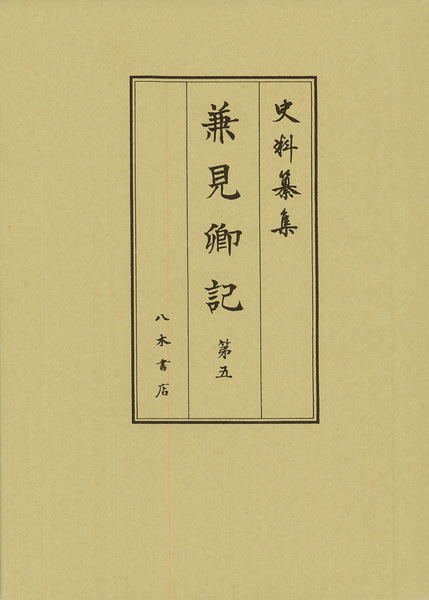 史料纂集
兼見卿記 第五
八木書店